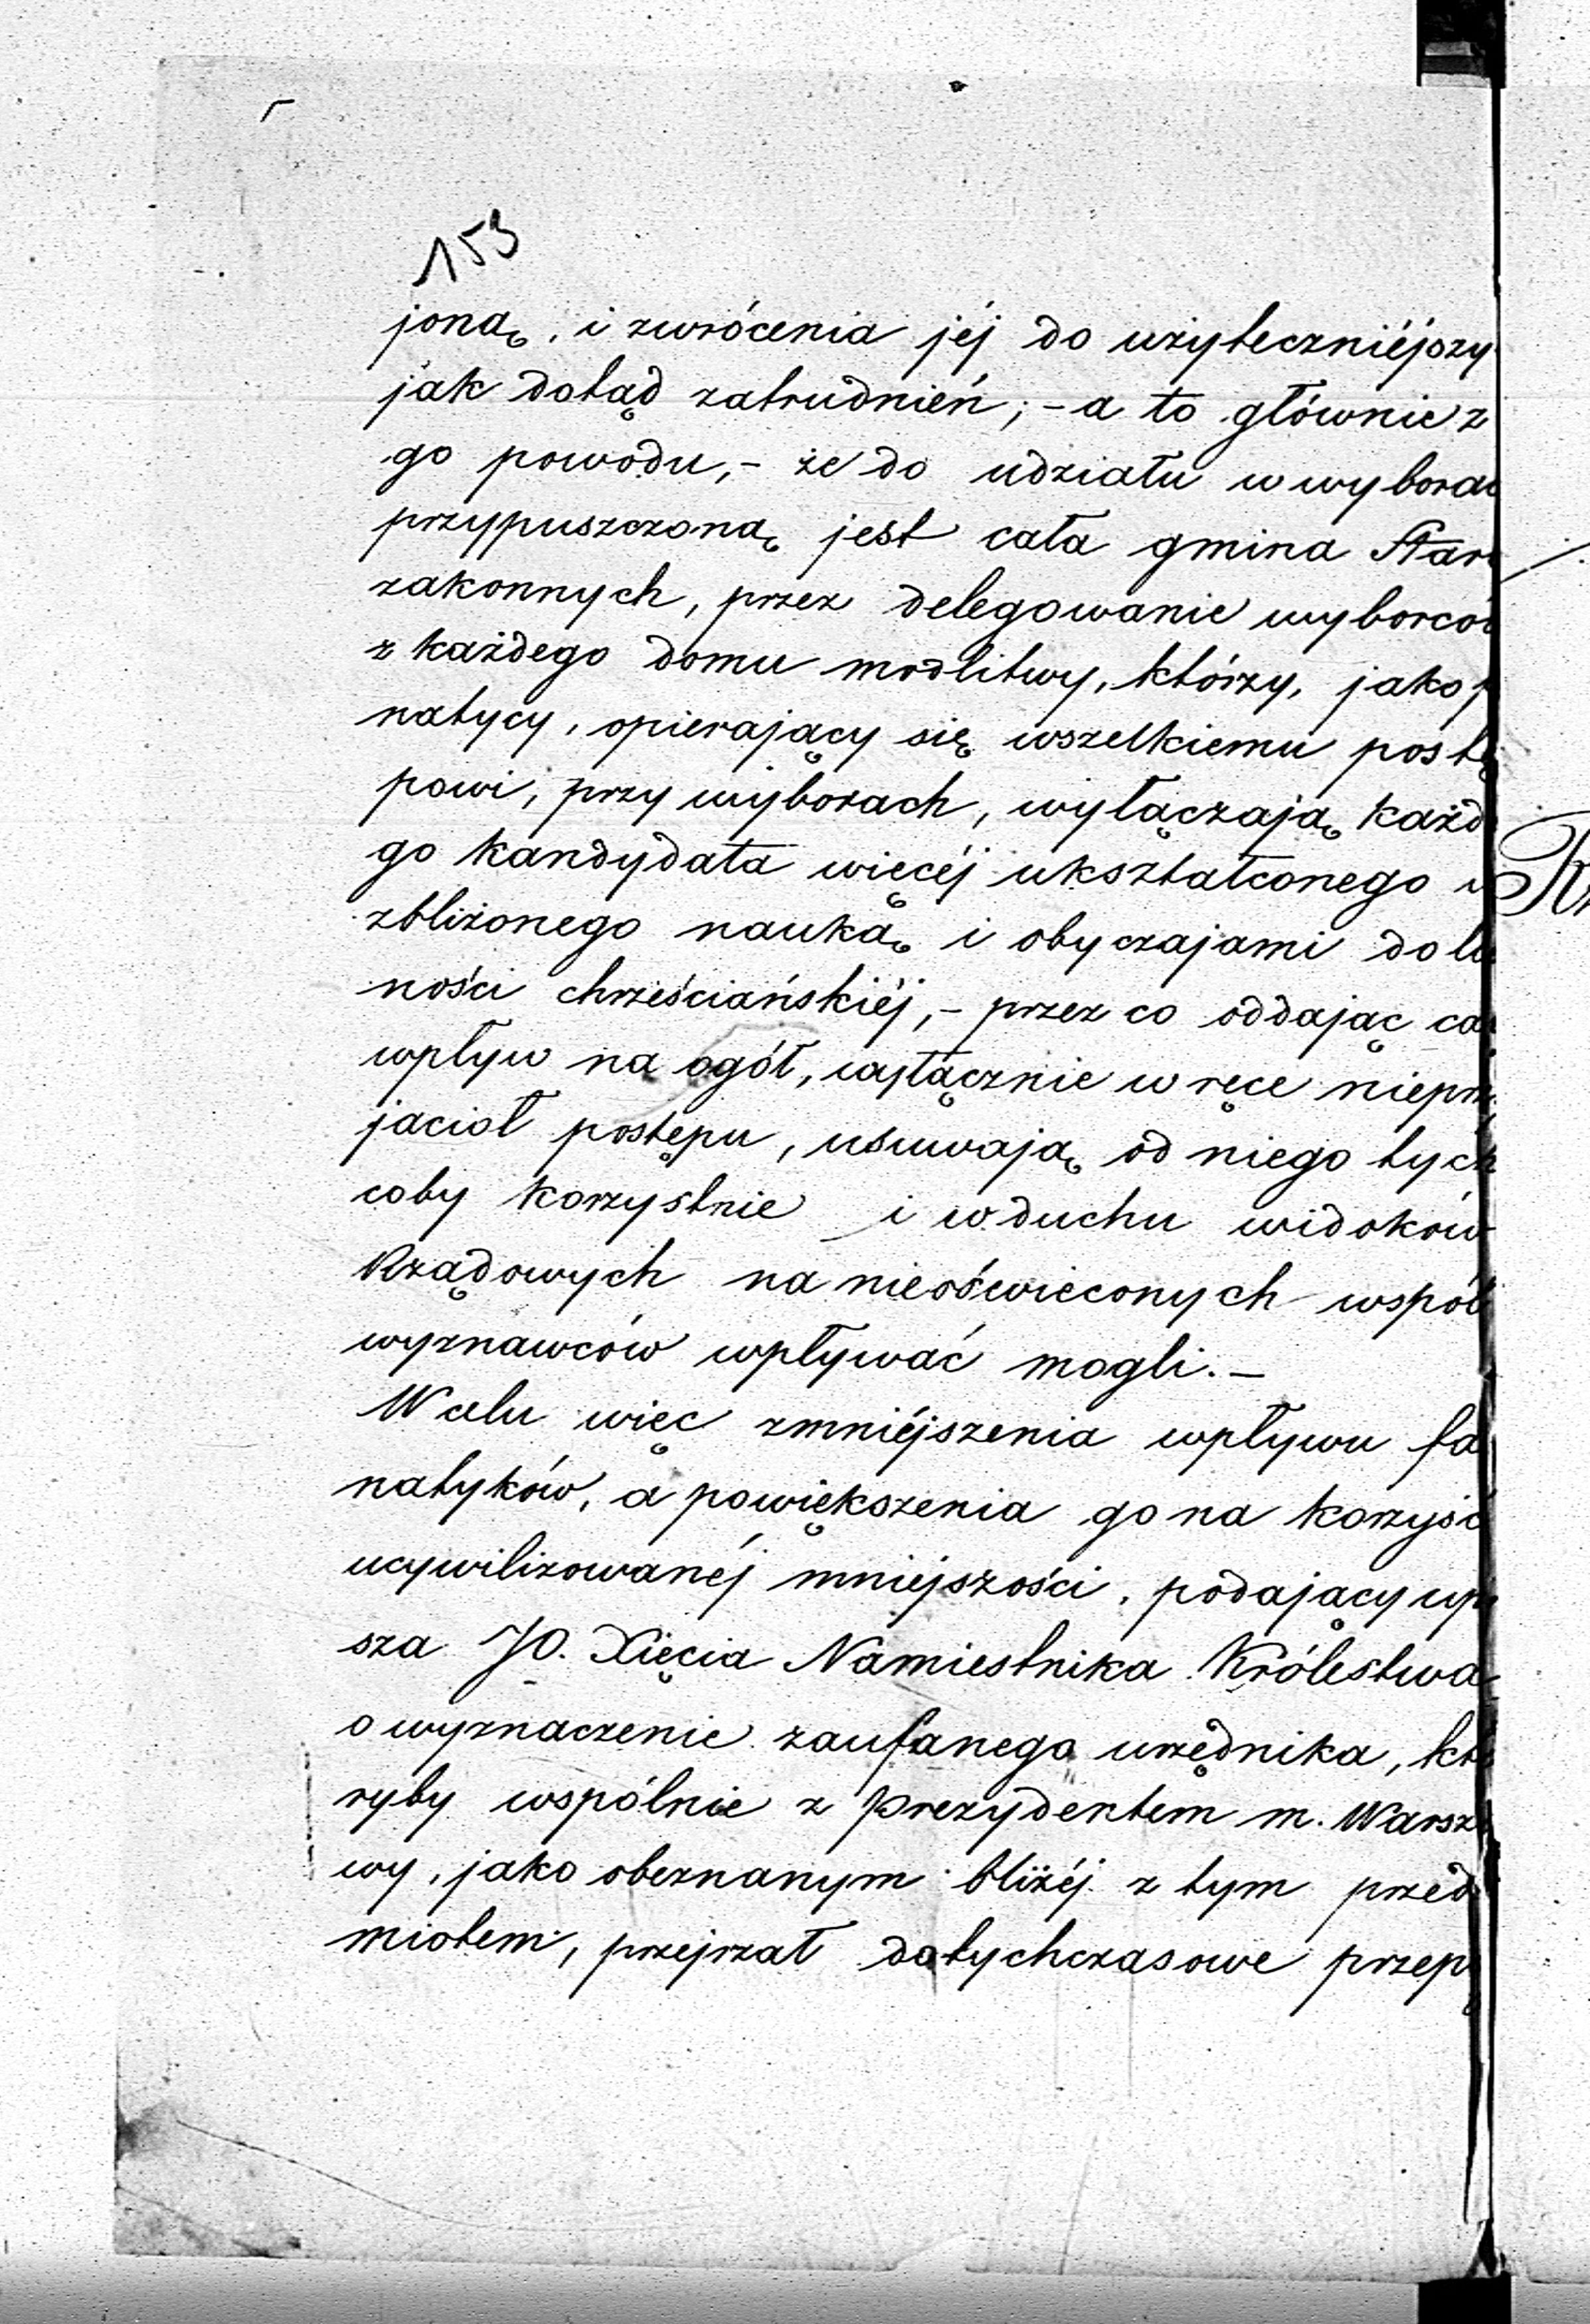 153
joną, i zwrócenia jéj do użyteczniéjszy
jak dotąd zatrudnień; – a to głównie z
go powodu, – że do udziału w wybora
przypuszczoną jest cała gmina Star
zakonnych, przez delegowanie wyborcó
z każdego domu modlitwy, którzy, jako
natycy, opierający się wszelkiemu postę
powi, przy wyborach, wyłączają każd
go kandydata więcéj ukształconego
zbliżonego nauką i obyczajami do lu
ności chrześciańskiéj, – przez co oddając ca
wpływ na ogół, wyłącznie w ręce nieprz
jaciół postępu, usuwają od niego tych
coby korzystnie i w duchu widoków
Rządowych na nieoświeconych współ
wyznawców wpływać mogli. –
W celu więc zmniéjszenia wpływu fa
natyków, a powiększenia go na korzyść
ucywilizowanéj mniejszości, podający upr
sza JO. Xięcia Namiestnika Królestwa
o wyznaczenie zaufanego urzędnika, któ
ryby wspólnie z Prezydentem m. Warsz
wy, jako obeznanym bliżéj z tym przed
miotem, przejrzał dotychczasowe przep